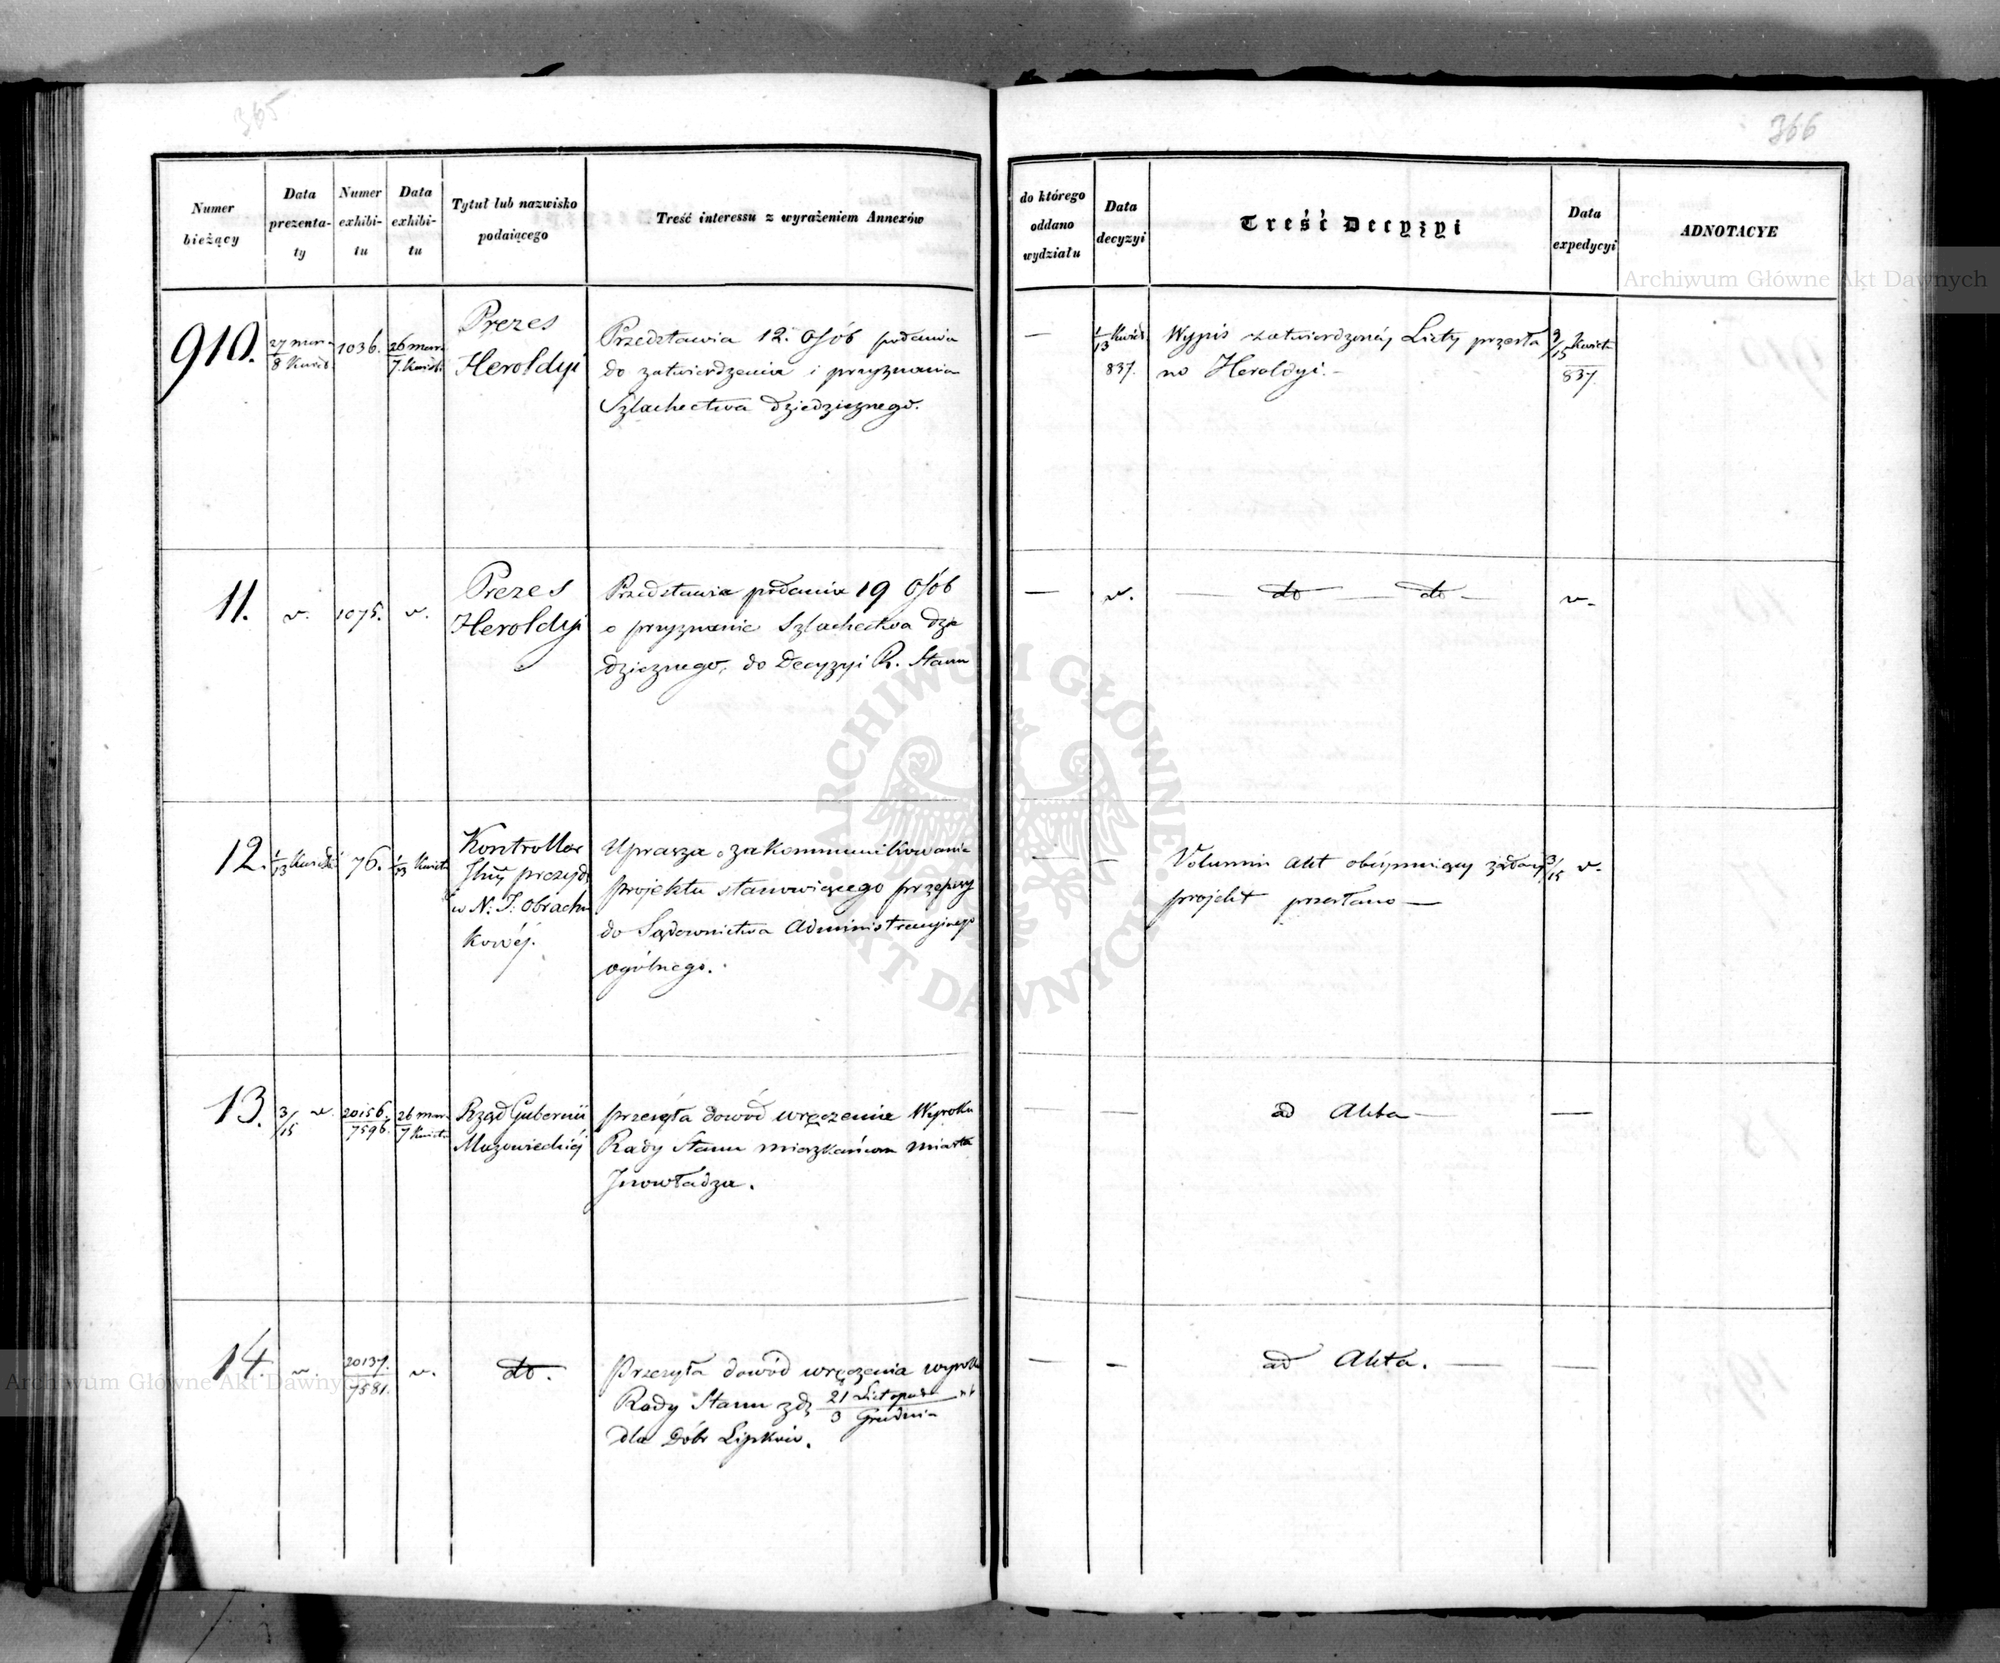 365
366
Numer bieżący
Data prezenta-ty
Numer exhibi-tu
Data exhibi-tu
Tytuł lub nazwisko podaiącego
Treść interessu z wyrażeniem Annexów
do którego oddano wydziału
Data decyzyi
Treść Decyzyi
Data expedycyi
ADNOTACYE
Archiwum Główne Akt Dawnych
910.
27 mar
8 Kwiet.
1036.
26 mar
7. Kwiet
Prezes
Heroldyi
Przedstawia 12. Osób podania
do zatwierdzenia i przyznania
Szlachectwa dziedzicznego.
—
1/13 Kwiet
837.
Wypis zatwierdzonéj Listy przesła
no Heroldyi.—
3/15 Kwiet
837.
11.
v.
1075.
v.
Prezes
Heroldyi
Przedstawia podania 19 Osób
o przyznanie Szlachectwa dzie
dzicznego, do Decyzyi R. Stanu
—
v.
— do — do —
v.
12.
1/13 Kwiet
76.
1/13 Kwiet
Kontroller
Służ prezyd
w N. I. obrachun
kowéj.
Uprasza o zakommunikowanie
projektu stanowiącego przepisy
do Sądownictwa Administracyjnego
ogólnego.
— —
Volumin Akt obejmujący żądany
projekt przesłano —
3/15 v.
13.
3/15 v.
20156.
7596.
26 mar
7 Kwiet
Rząd Gubernii
Mazowieckiéj
przesyła dowód wręczenia Wyroku
Rady Stanu mieszkańcom miasta
Inowłodza.
— —
ad Akta —
—
14.
v.
20137.
7581.
v.
do.
Przesyła dowód wręczenia wyroku
Rady Stanu z d. 21 Listopada
3 Grudnia
dla Dóbr Lipków.
— —
ad Akta. —
—
ARCHIWUM GŁÓWNE AKT DAWNYCH
Archiwum Główne Akt Dawnych